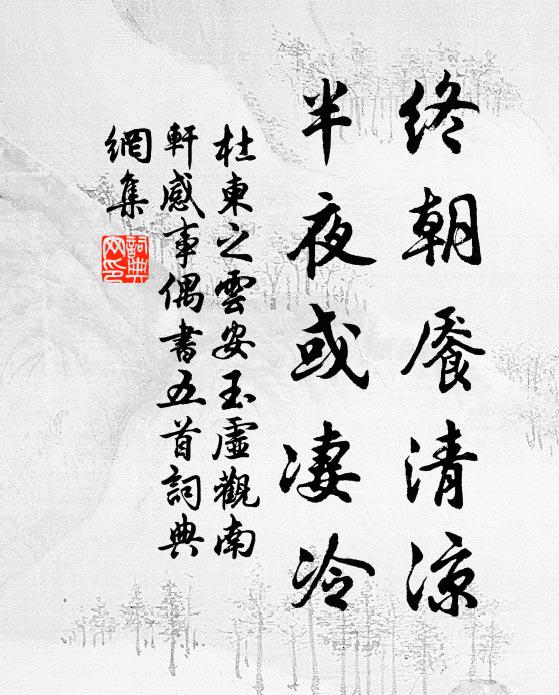 終朝饜清涼
半夜或凄冷
杜東之雲安玉虛觀南
軒感事偶書五首詞典
網集
詞典網印